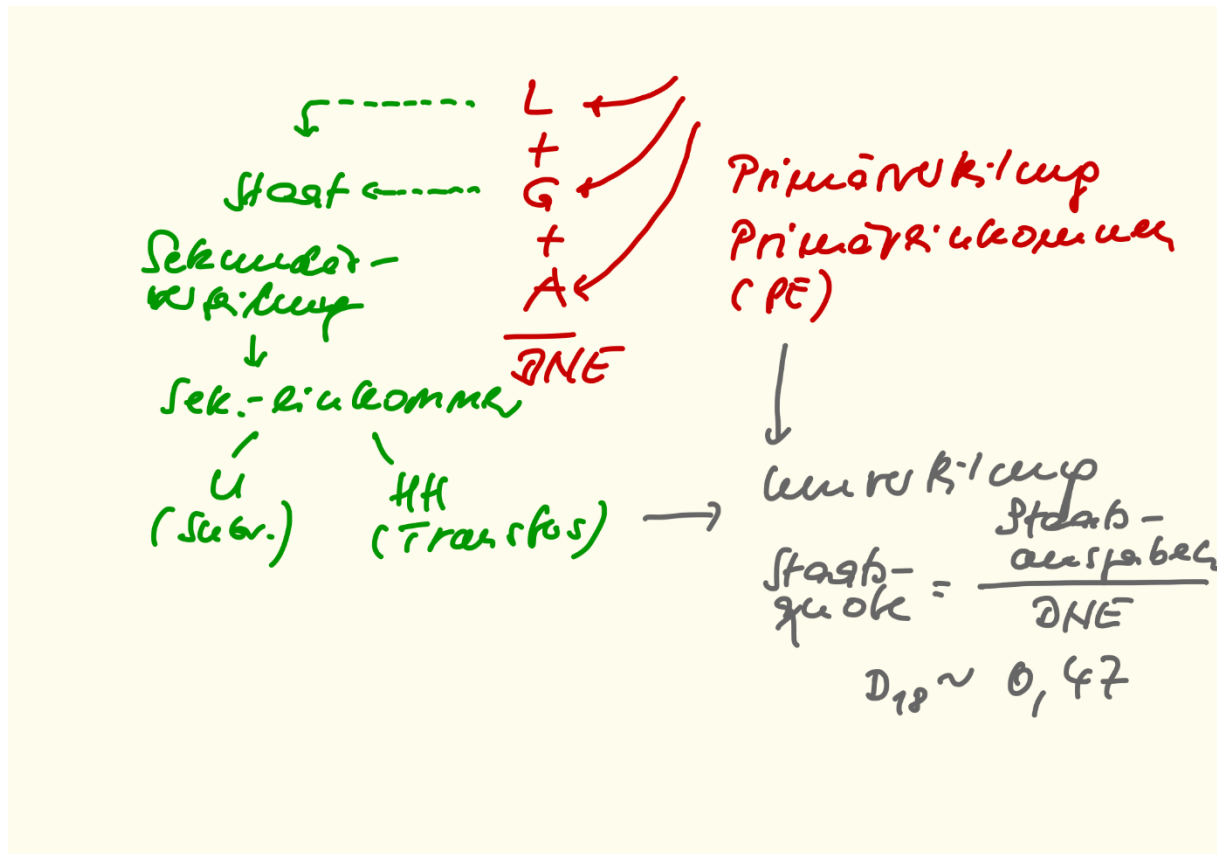 L
+
Staat G
+
A
BNE
Primärverteilung
Primäreinkommen
(PE)
Sekundär-
verteilung
Sek.-einkommen
U
(Subv.)
HH
(Transfers)
Umverteilung
Staats-
quote = Staats-
ausgaben
BNE
D18 ~ 0,47